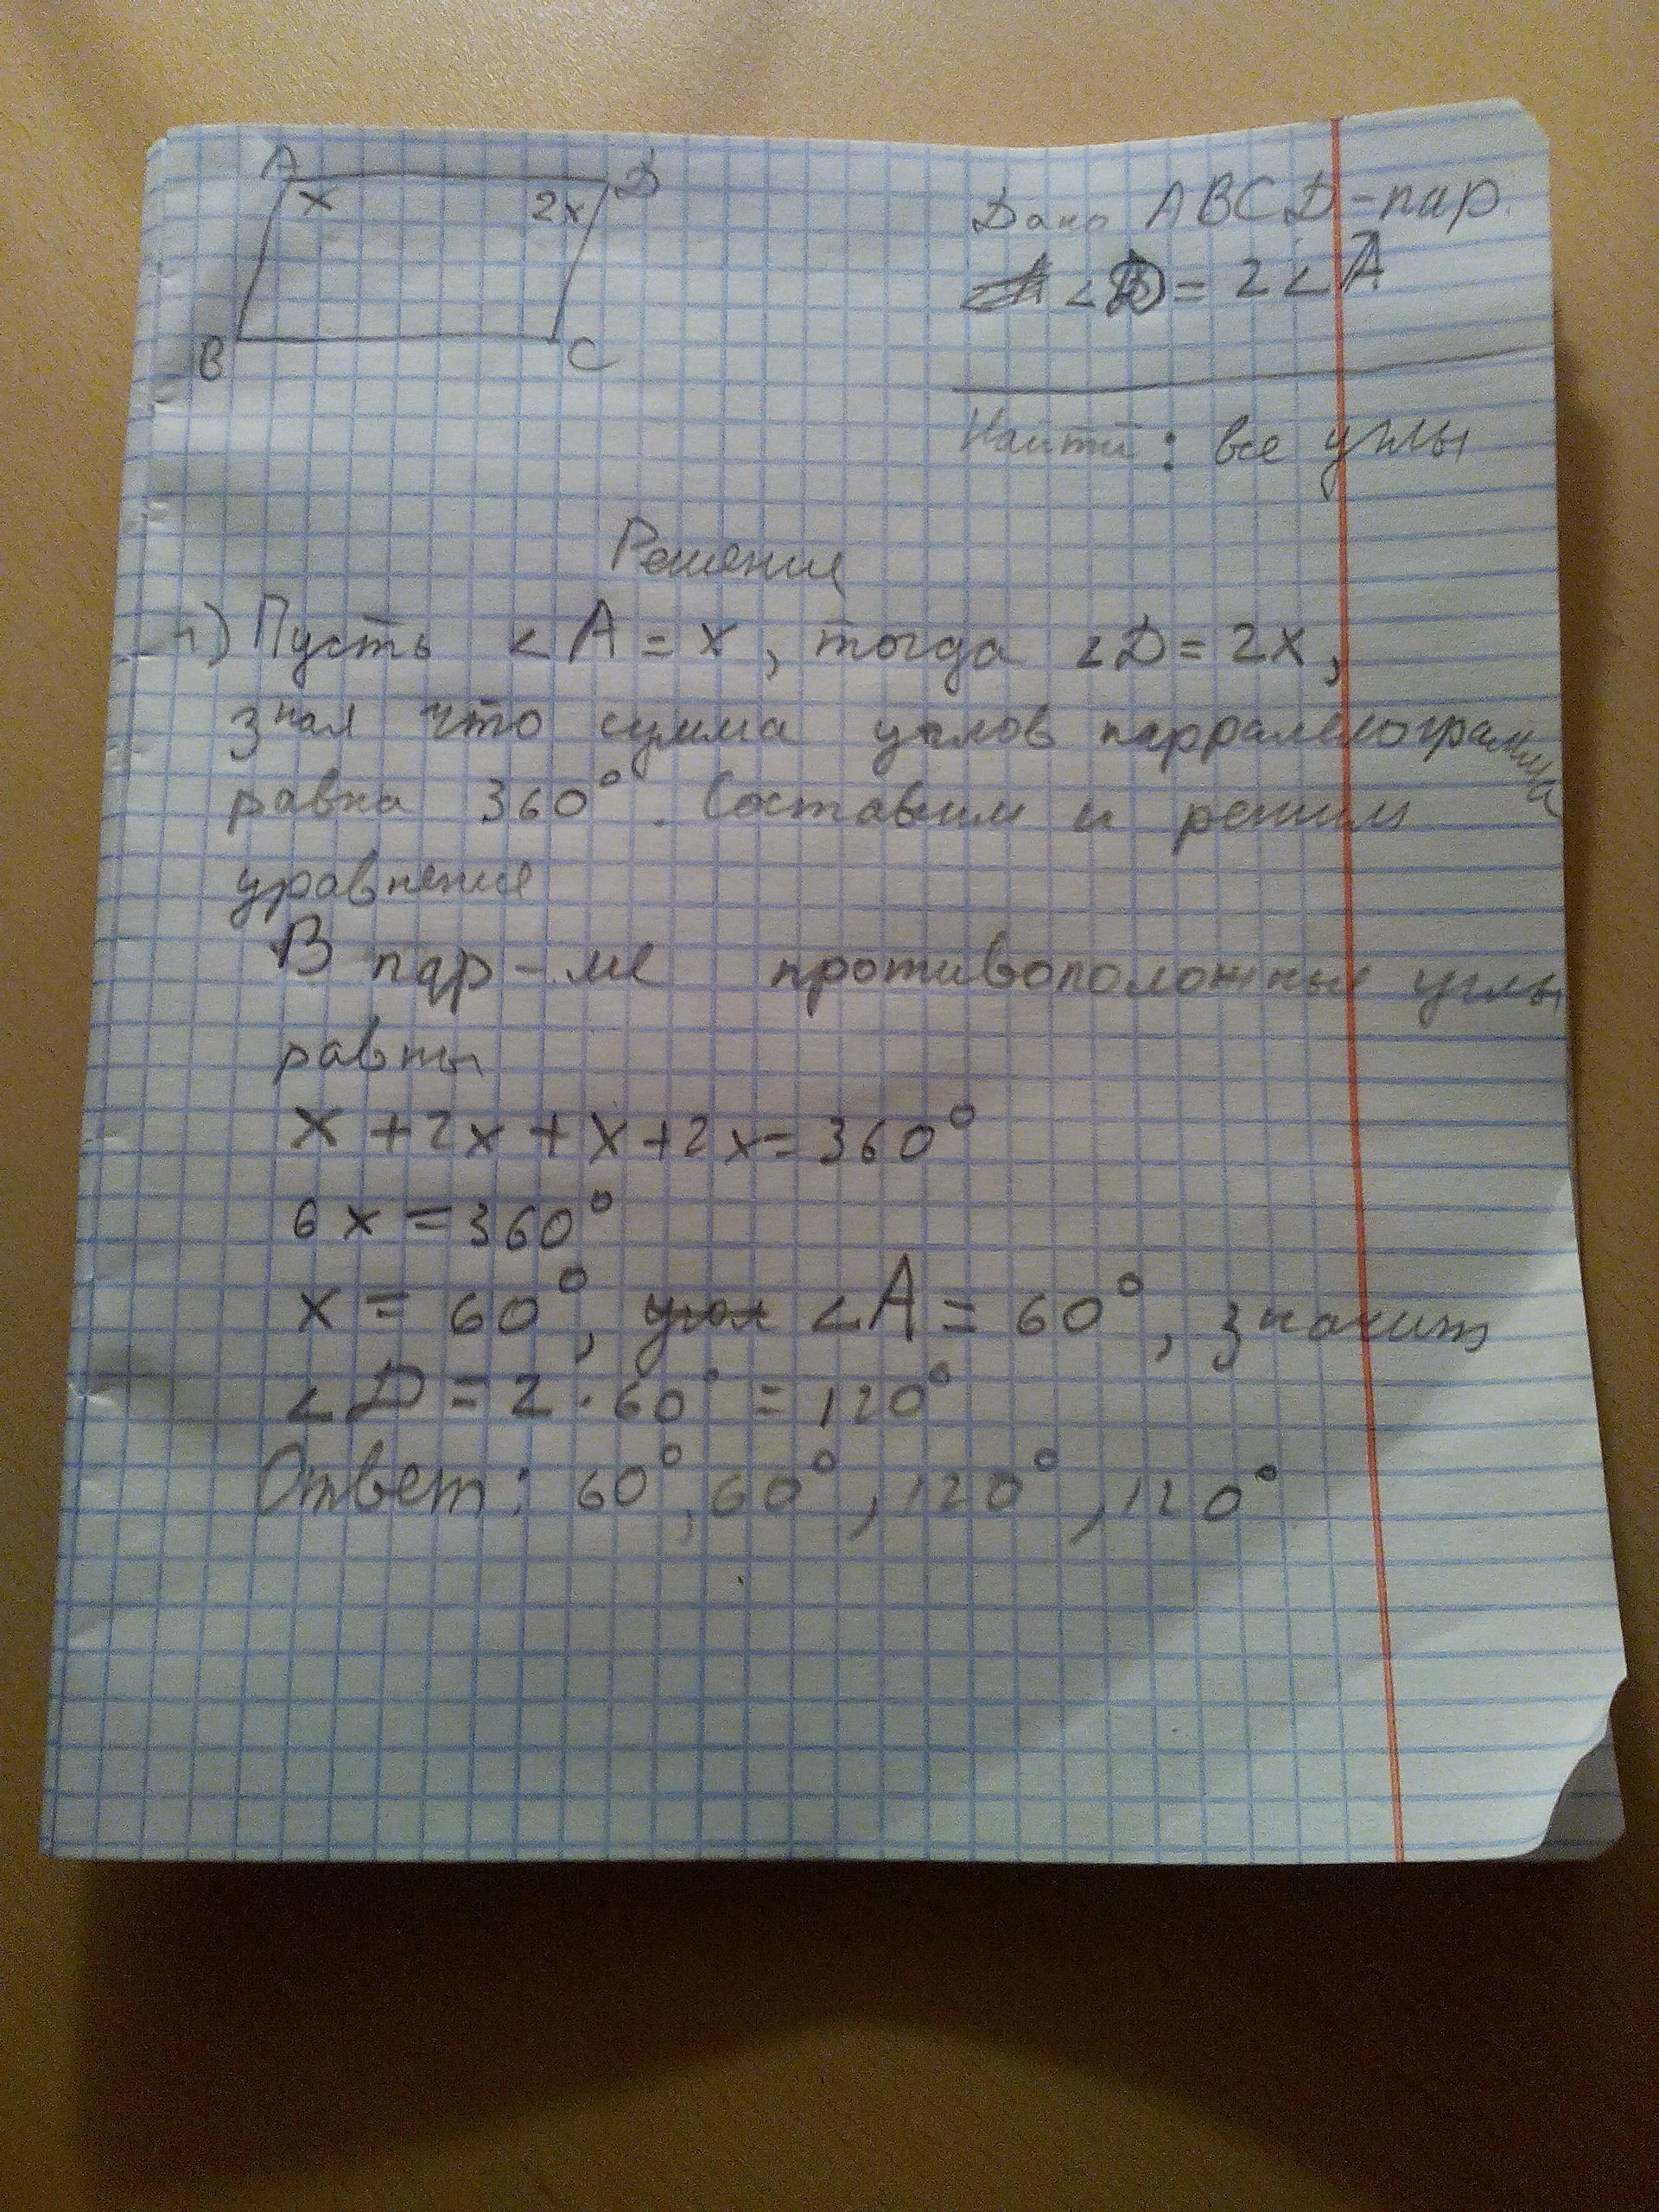 A D
x 2x
B C
Дано ABCD-пар.
<D = 2<A
Найти: все углы
Решение
1) Пусть <A = x, тогда <D = 2x,
зная что сумма углов парралелограмма
равна 360°. Составим и решим
уравнение
В пар-ме противоположные углы
равны
x + 2x + x + 2x = 360°
6x = 360°
x = 60°, угол <A = 60°, значит
<D = 2 · 60° = 120°
Ответ: 60°, 60°, 120°, 120°